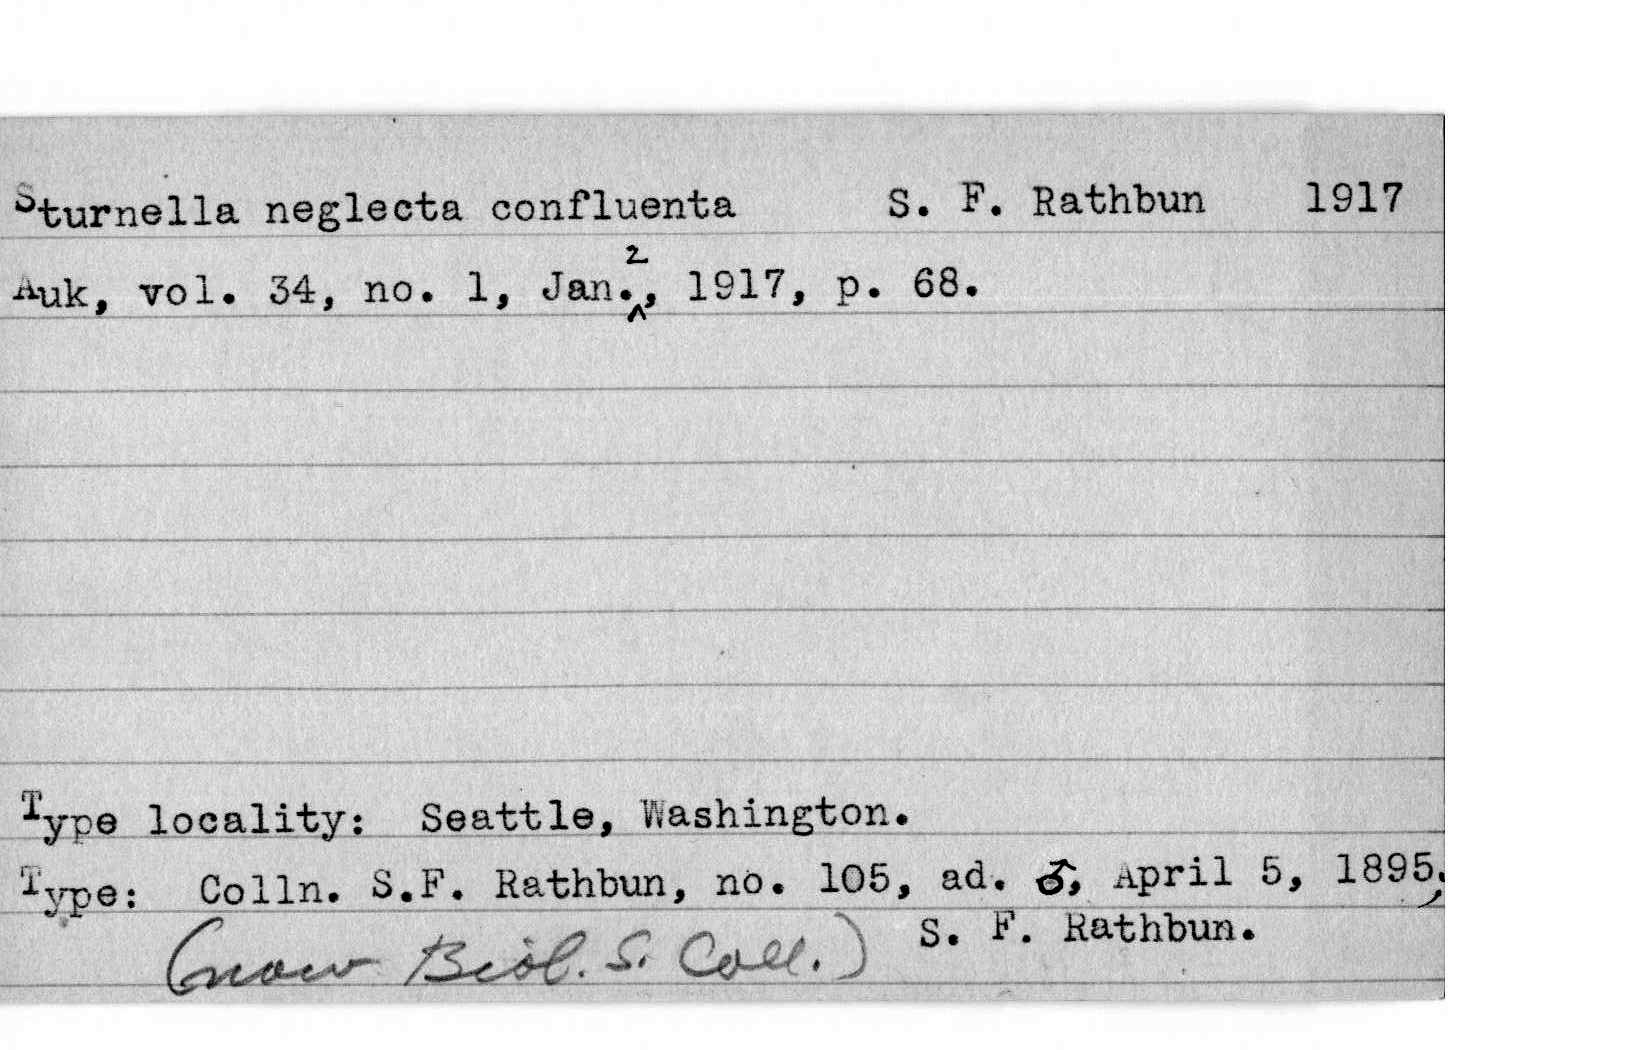 Sturnella neglecta confluenta S. F. Rathbun 1917
Auk, vol. 34, no. 1, Jan. 2, 1917, p. 68.
Type locality: Seattle, Washington.
Type: Colln. S.F. Rathbun, no. 105, ad. ♂, April 5, 1895;
S. F. Rathbun.
(now Biol. S. Coll.)